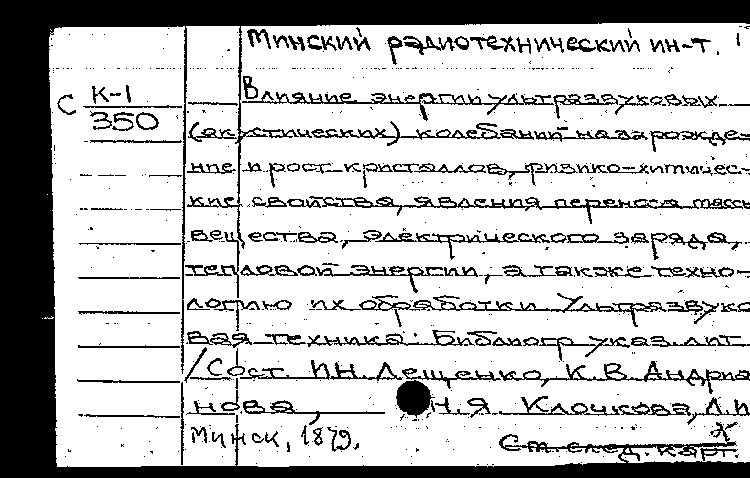 Минский радиотехнический ин-т.
С К-1
350
Влияние энергии ультразвуковых
(акустических) колебаний на зарожде-
ние и рост кристаллов, физико-химичес-
кие свойства, явления переноса массы
вещества, электрического заряда,
тепловой энергии, а также техно-
логию их обработки Ультразвуко
вая техника: Библиогр указ. лит
/Сост И.Н. Лещенко, К.В. Андриа
нова, Н.Я. Клочкова, Л.И
Минск, 1879.
См. след. карт.